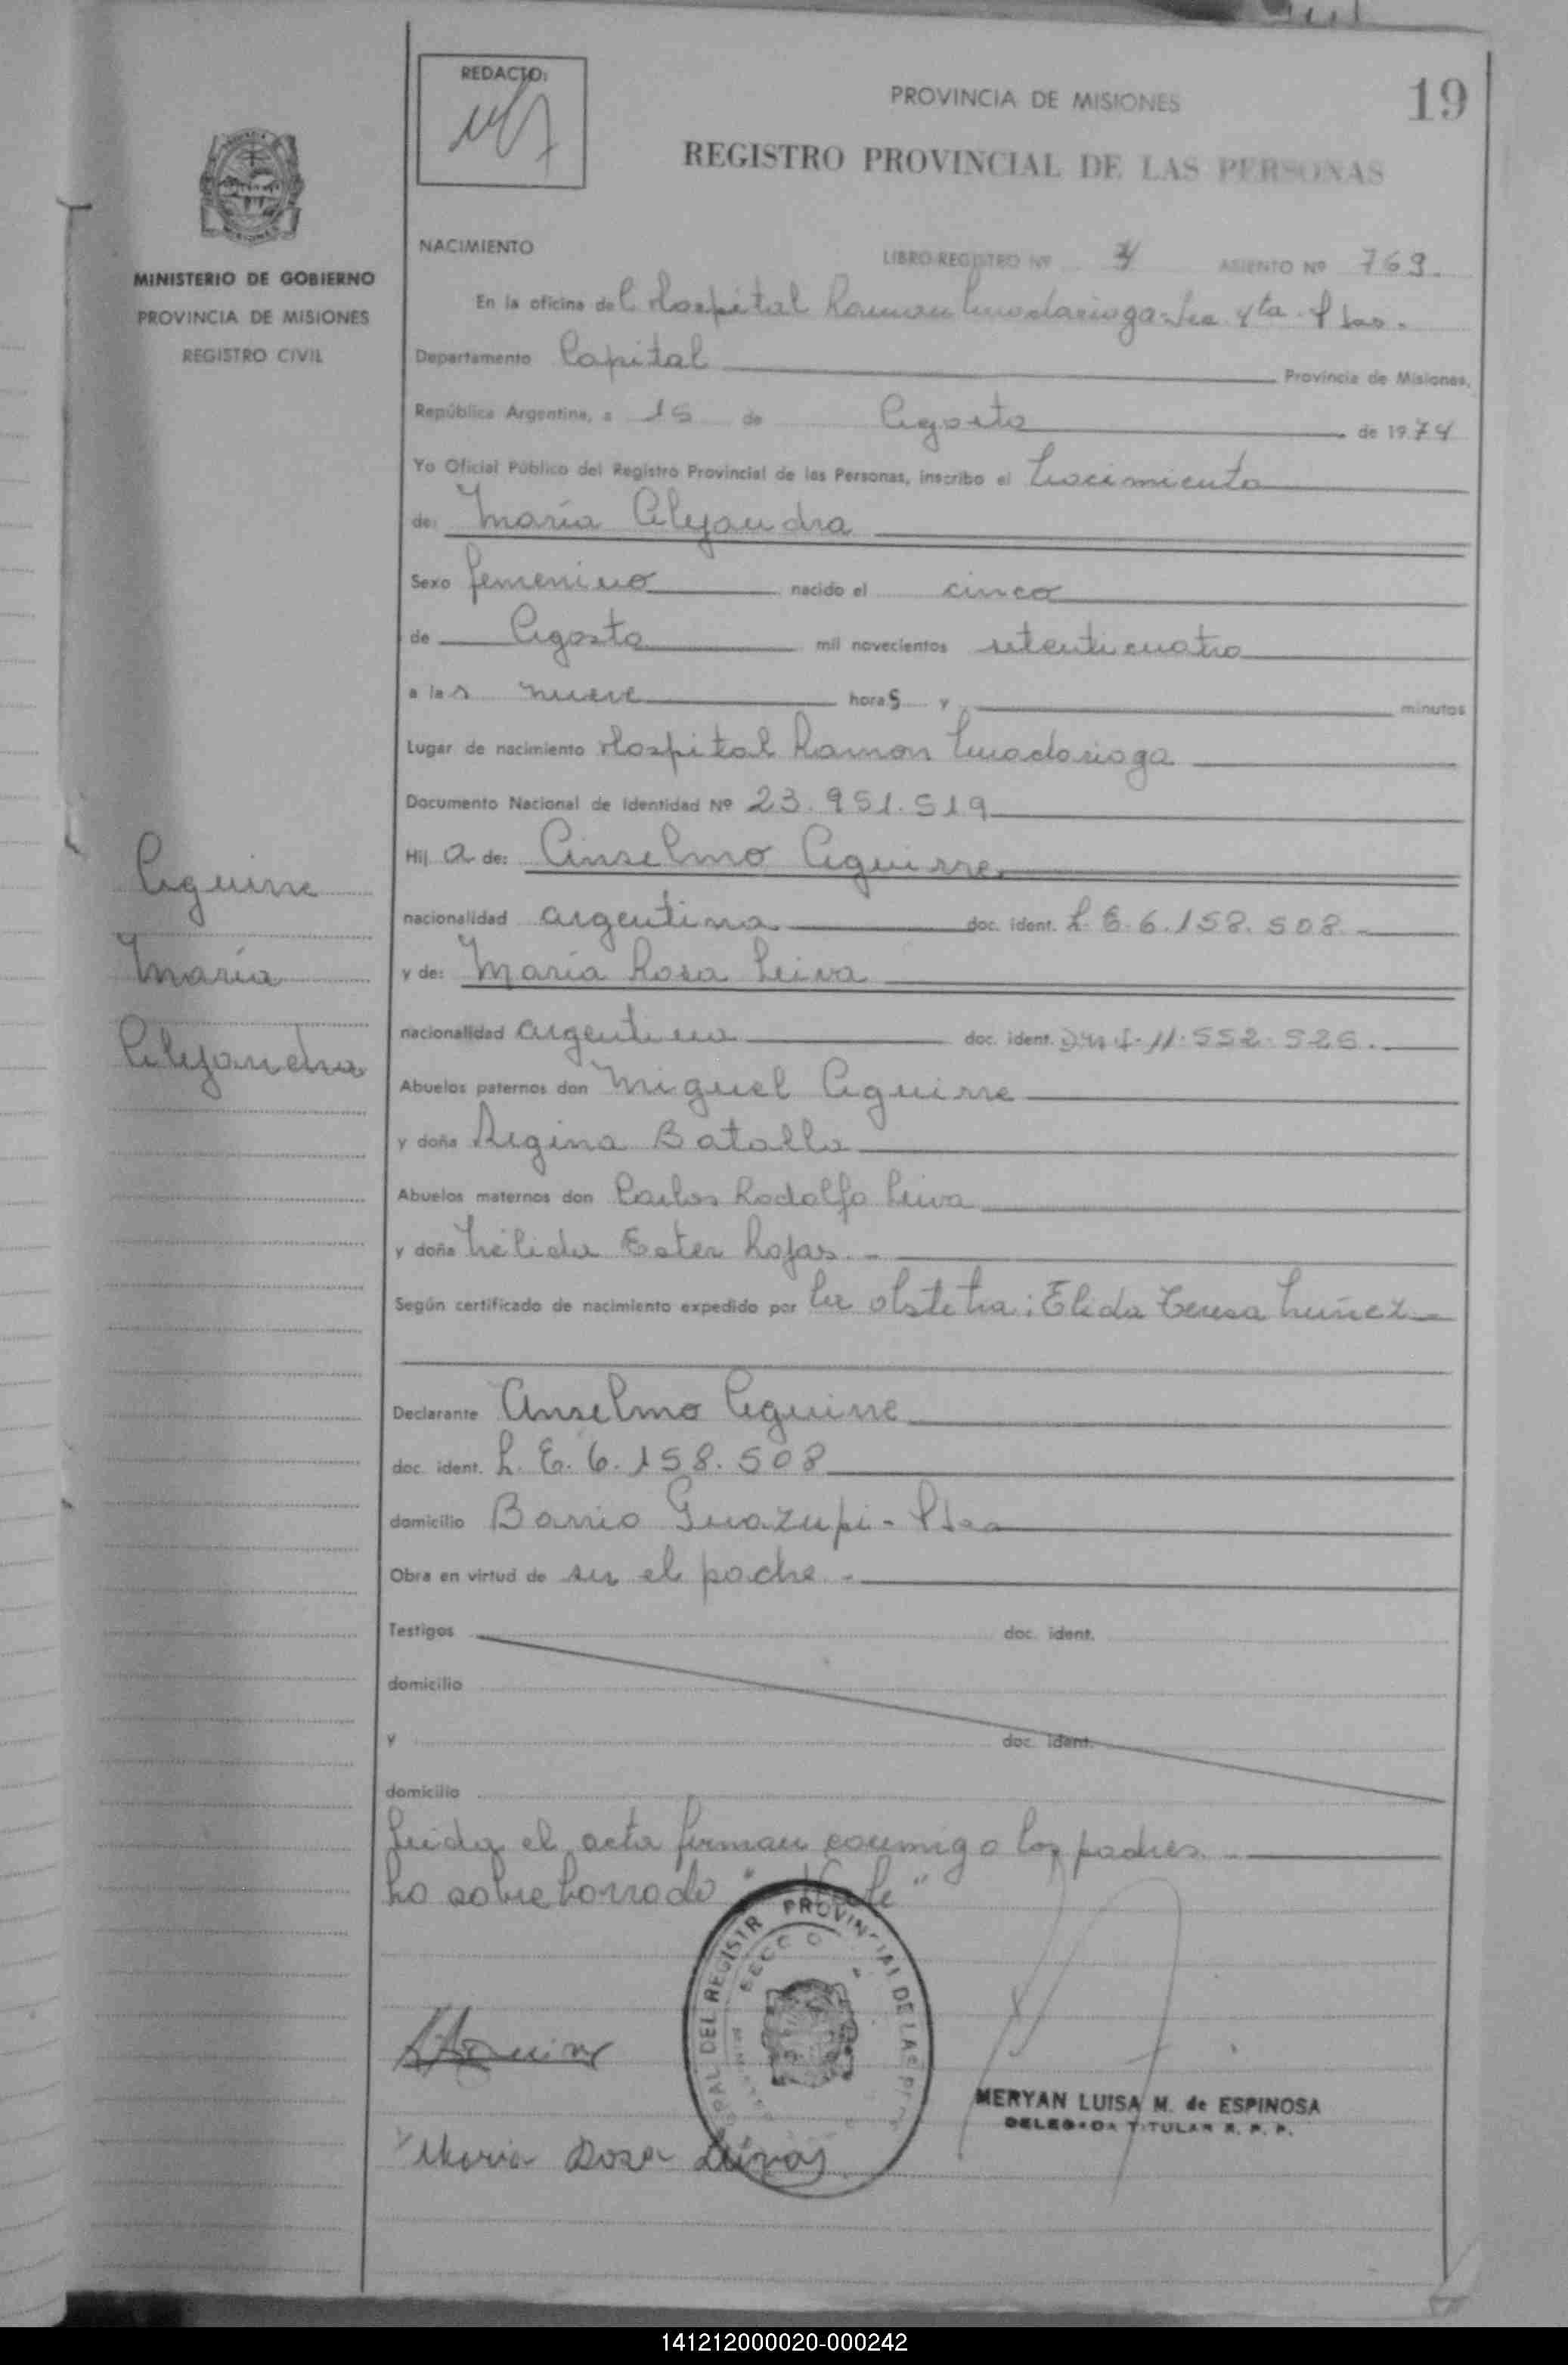 REDACTO:
PROVINCIA DE MISIONES
19
REGISTRO PROVINCIAL DE LAS PERSONAS
MINISTERIO DE GOBIERNO
PROVINCIA DE MISIONES
REGISTRO CIVIL
NACIMIENTO
LIBRO-REGISTRO Nº ASIENTO Nº 769.
En la oficina del Hospital Ramon Madariaga Sec 4ta Pdas.
Departamento Capital Provincia de Misiones,
República Argentina, a 15 de Agosto de 1974
Yo Oficial Público del Registro Provincial de las Personas, inscribo el Nacimiento
de: María Alejandra
Sexo femenino nacido el cinco
de Agosto mil novecientos setenticuatro
a las nueve horas y minutos
Lugar de nacimiento Hospital Ramon Madariaga
Documento Nacional de Identidad Nº 23.951.519
Hija de: Anselmo Aguirre
nacionalidad argentina doc. ident. L.E. 6.158.508.-
y de: María Rosa Leiva
nacionalidad argentina doc. ident. DNI. 11.552.525.
Abuelos paternos don Miguel Aguirre
y doña Regina Batalla
Abuelos maternos don Carlos Rodolfo Leiva
y doña Nélida Ester Rojas.-
Según certificado de nacimiento expedido por la obstetra: Elida Teresa Nuñez
Declarante Anselmo Aguirre
doc. ident. L.E. 6.158.508
domicilio Barrio Guazupi - Pdas
Obra en virtud de ser el padre.-
Testigos doc. ident.
domicilio
y doc. ident.
domicilio
Leida el acta firman conmigo los padres.-
Lo sobreborrado
Aguirre
María
Alejandra
DEL REGISTR PROVINCIAL DE LAS
SECC
MERYAN LUISA M. de ESPINOSA
DELEGADA TITULAR R. P. P.
Maria Rosa
141212000020-000242